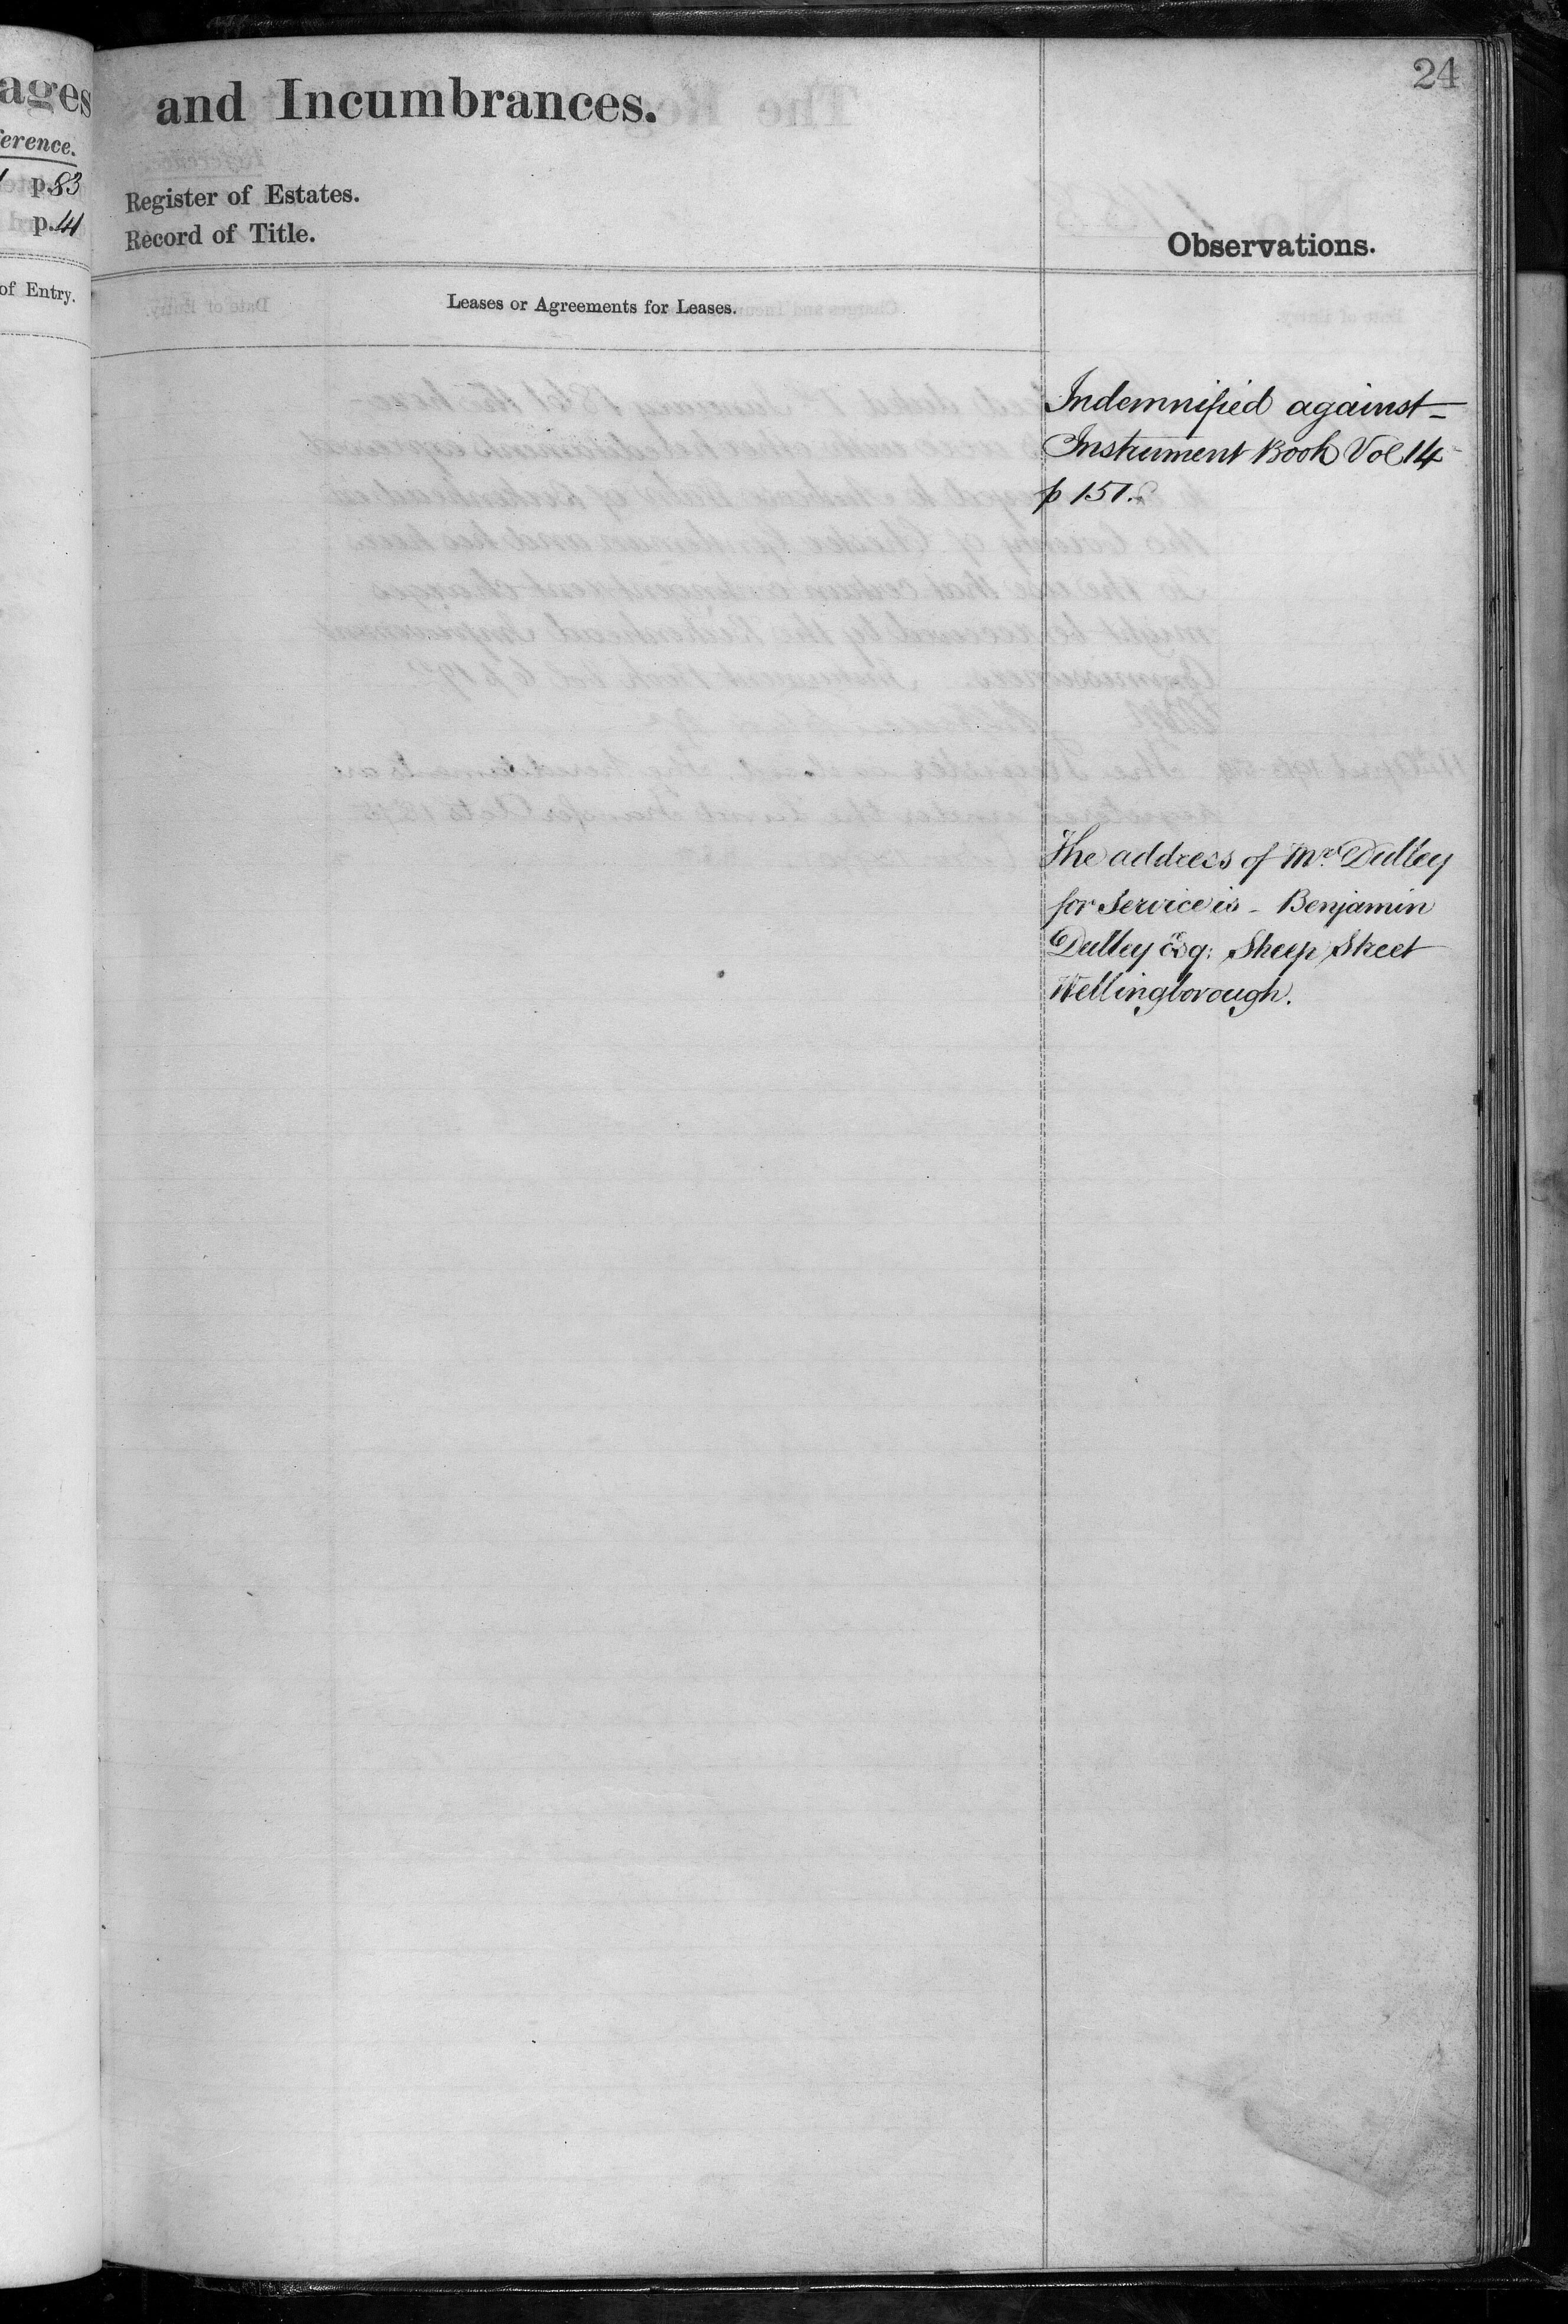 24
ages
and Incumbrances.
ference.
p.83
p.41
Register of Estates.
Record of Title.
Observations.
of Entry.
Leases or Agreements for Leases.
Indemnified against
Instrument Book Vol 14
p 151.
The address of Mr. Dulley
for Service is - Benjamin
Dulley Esq: Sheep Street
Wellingborough.